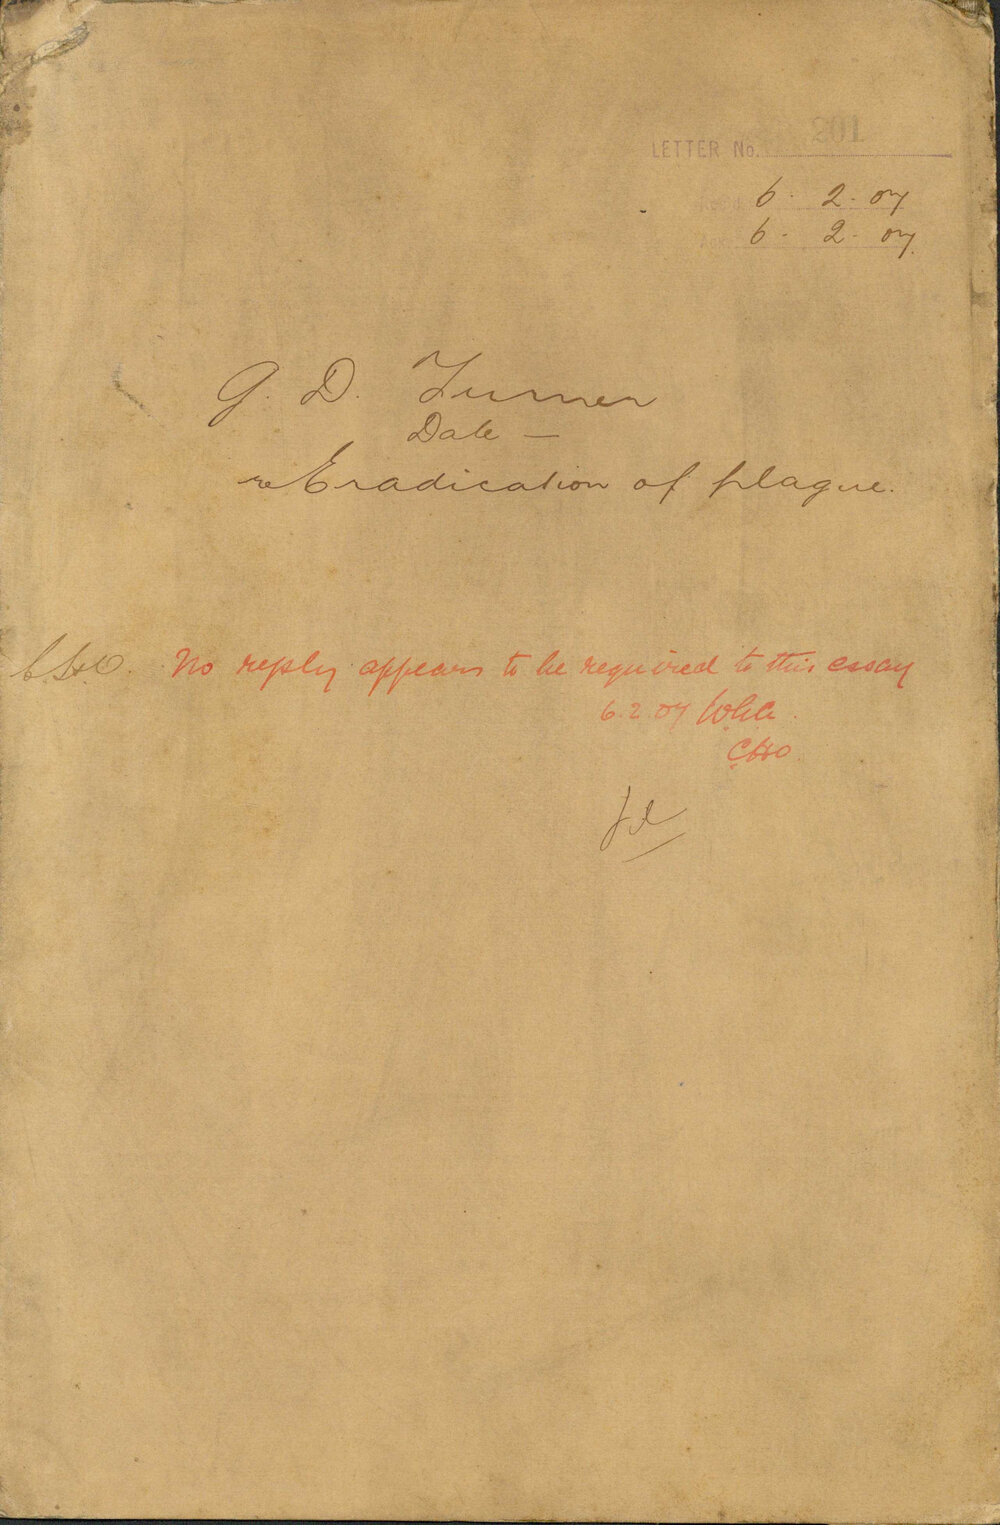 LETTER No. 201
6. 2. 07
6. 2. 07
G. D. Turner
Date —
re Eradication of plague.
C.H.O. No reply appears to be required to this essay
6.2.07
CHO